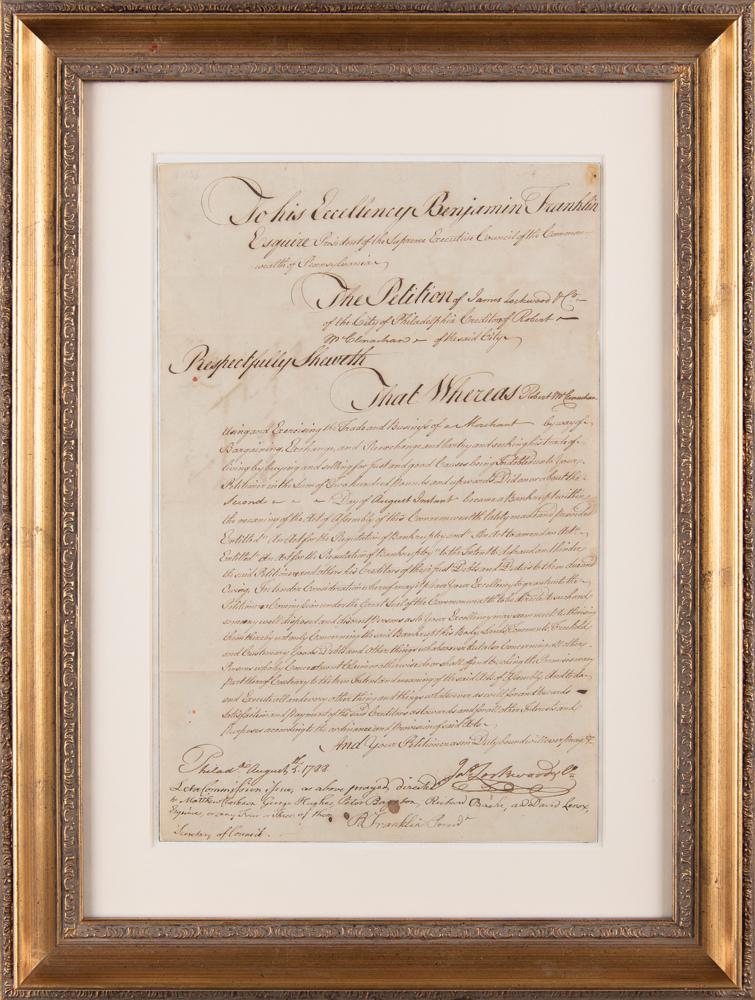 To his Excellency Benjamin Franklin
Esquire President of the Supreme Executive Council of the Common-
wealth of Pennsylvania
The Petition of James Lockwood & Co.
of the City of Philadelphia Creditors of Robert
McClenachan of the said City
Respectfully Sheweth
That Whereas Robert McClenachan
using and Exercising the Trade and Business of a Merchant by way of
Bargaining, Exchange, and seeking his trade of
living by buying and selling for just and good Causes being Indebted unto Your
Petitioner in the Sum of Two hundred Pounds and upwards Did on or about the
Second Day of August Instant became a Bankrupt within
the meaning of the Act of Assembly of this Commonwealth lately made and provided
Entitled An Act for the Regulation of Bankruptcy and An Act to amend an Act
Entitled An Act for the Regulation of Bankruptcy to the Intent to defraud and hinder
the said Petitioner and others his Creditors of their just Debts and Duties to them due and
Owing. In tender Consideration whereof may it please Your Excellency to grant unto the
Petitioner a Commission under the Great Seal of the Commonwealth to be directed to such and
so many well disposed and discreet Persons as to Your Excellency may seem meet Authorising
them thereby not only Concerning the said Bankrupt his Body, Lands Tenements, Freehold
and Customary Goods Debts and other things whatsoever but also Concerning all other
Persons who by Concealment Claim or otherwise do or shall offend touching the Premises or any
part thereof Contrary to the true Intent and meaning of the said Acts of Assembly And to do
and Execute all and every other thing and things whatsoever as well for and towards
Satisfaction and Payment of the said Creditors as towards and for all other Intents and
Purposes according to the ordinance and Provision of said Acts
And Your Petitioner as in Duty bound will ever pray &c.
Philada. August 1788
Jas. Lockwood & Co.
Let a Commission issue, as above prayed, directed
to Matthew Clarkson George Hughes, Peter Baynton, Richard Bache, and David Lenox,
Esquires, or any Two or Three of them
B Franklin Presidt.
Secretary of Council.